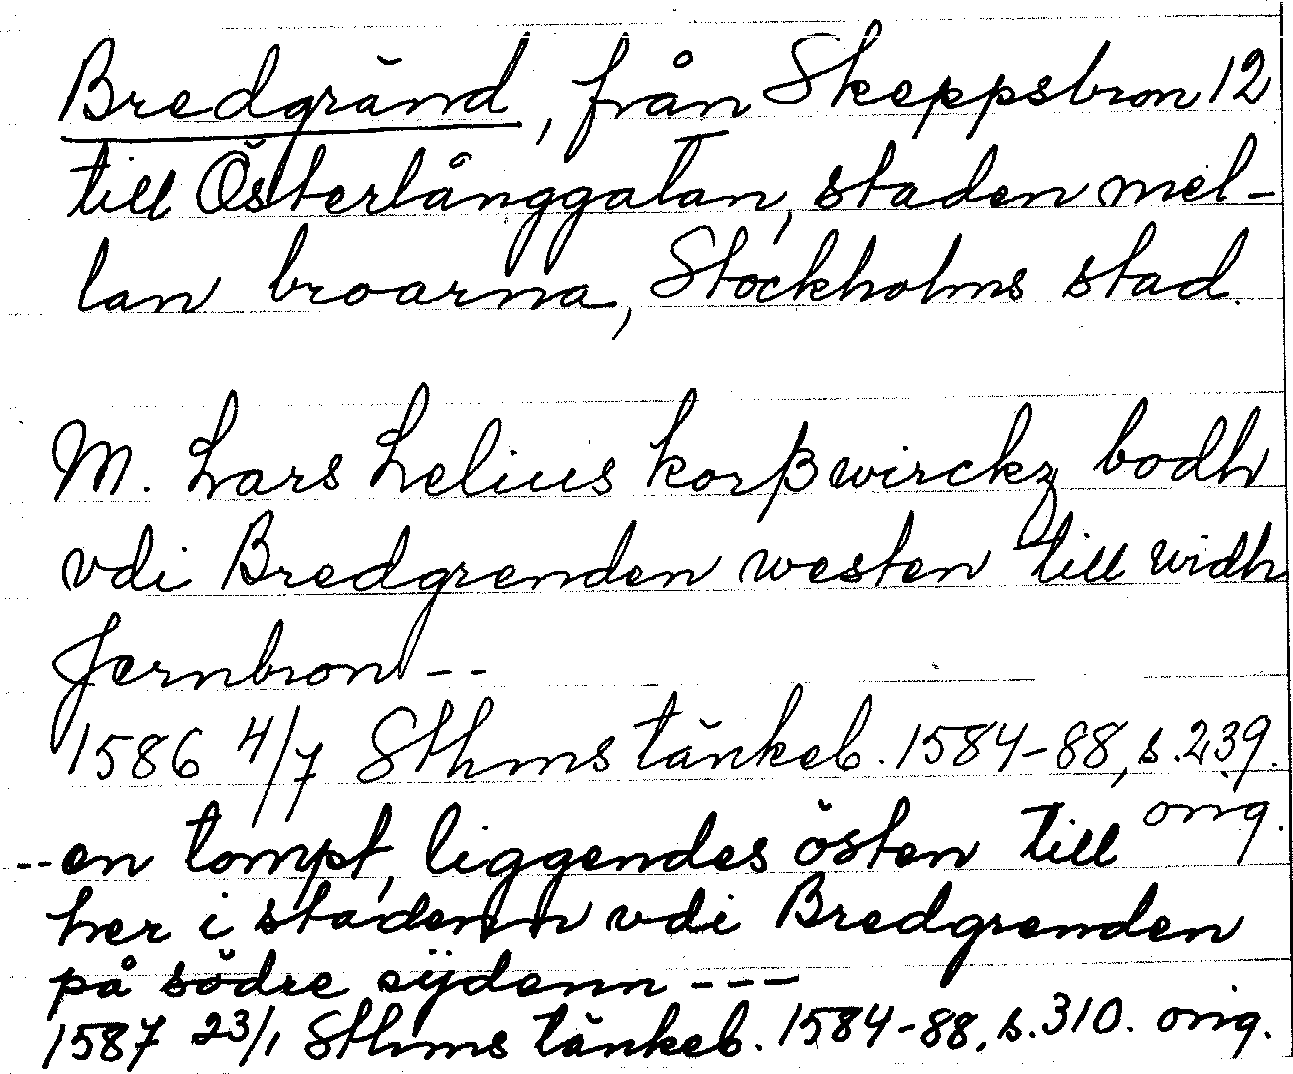 Bredgränd, från Skeppsbron 12
till Österlånggatan, staden mel-
lan broarna, Stockholms stad.
M. Lars Lelius korßwirckz bodh
vdi Bredgrenden westen till widh
Jernbron --
1586 4/7 Sthms tänkeb. 1584-88, s. 239.
orig.
-- en tompt, liggendes östen till
her i stadenn vdi Bredgrenden
på södre sijdenn ---
1587 23/1 Sthms tänkeb. 1584-88, s. 310. orig.